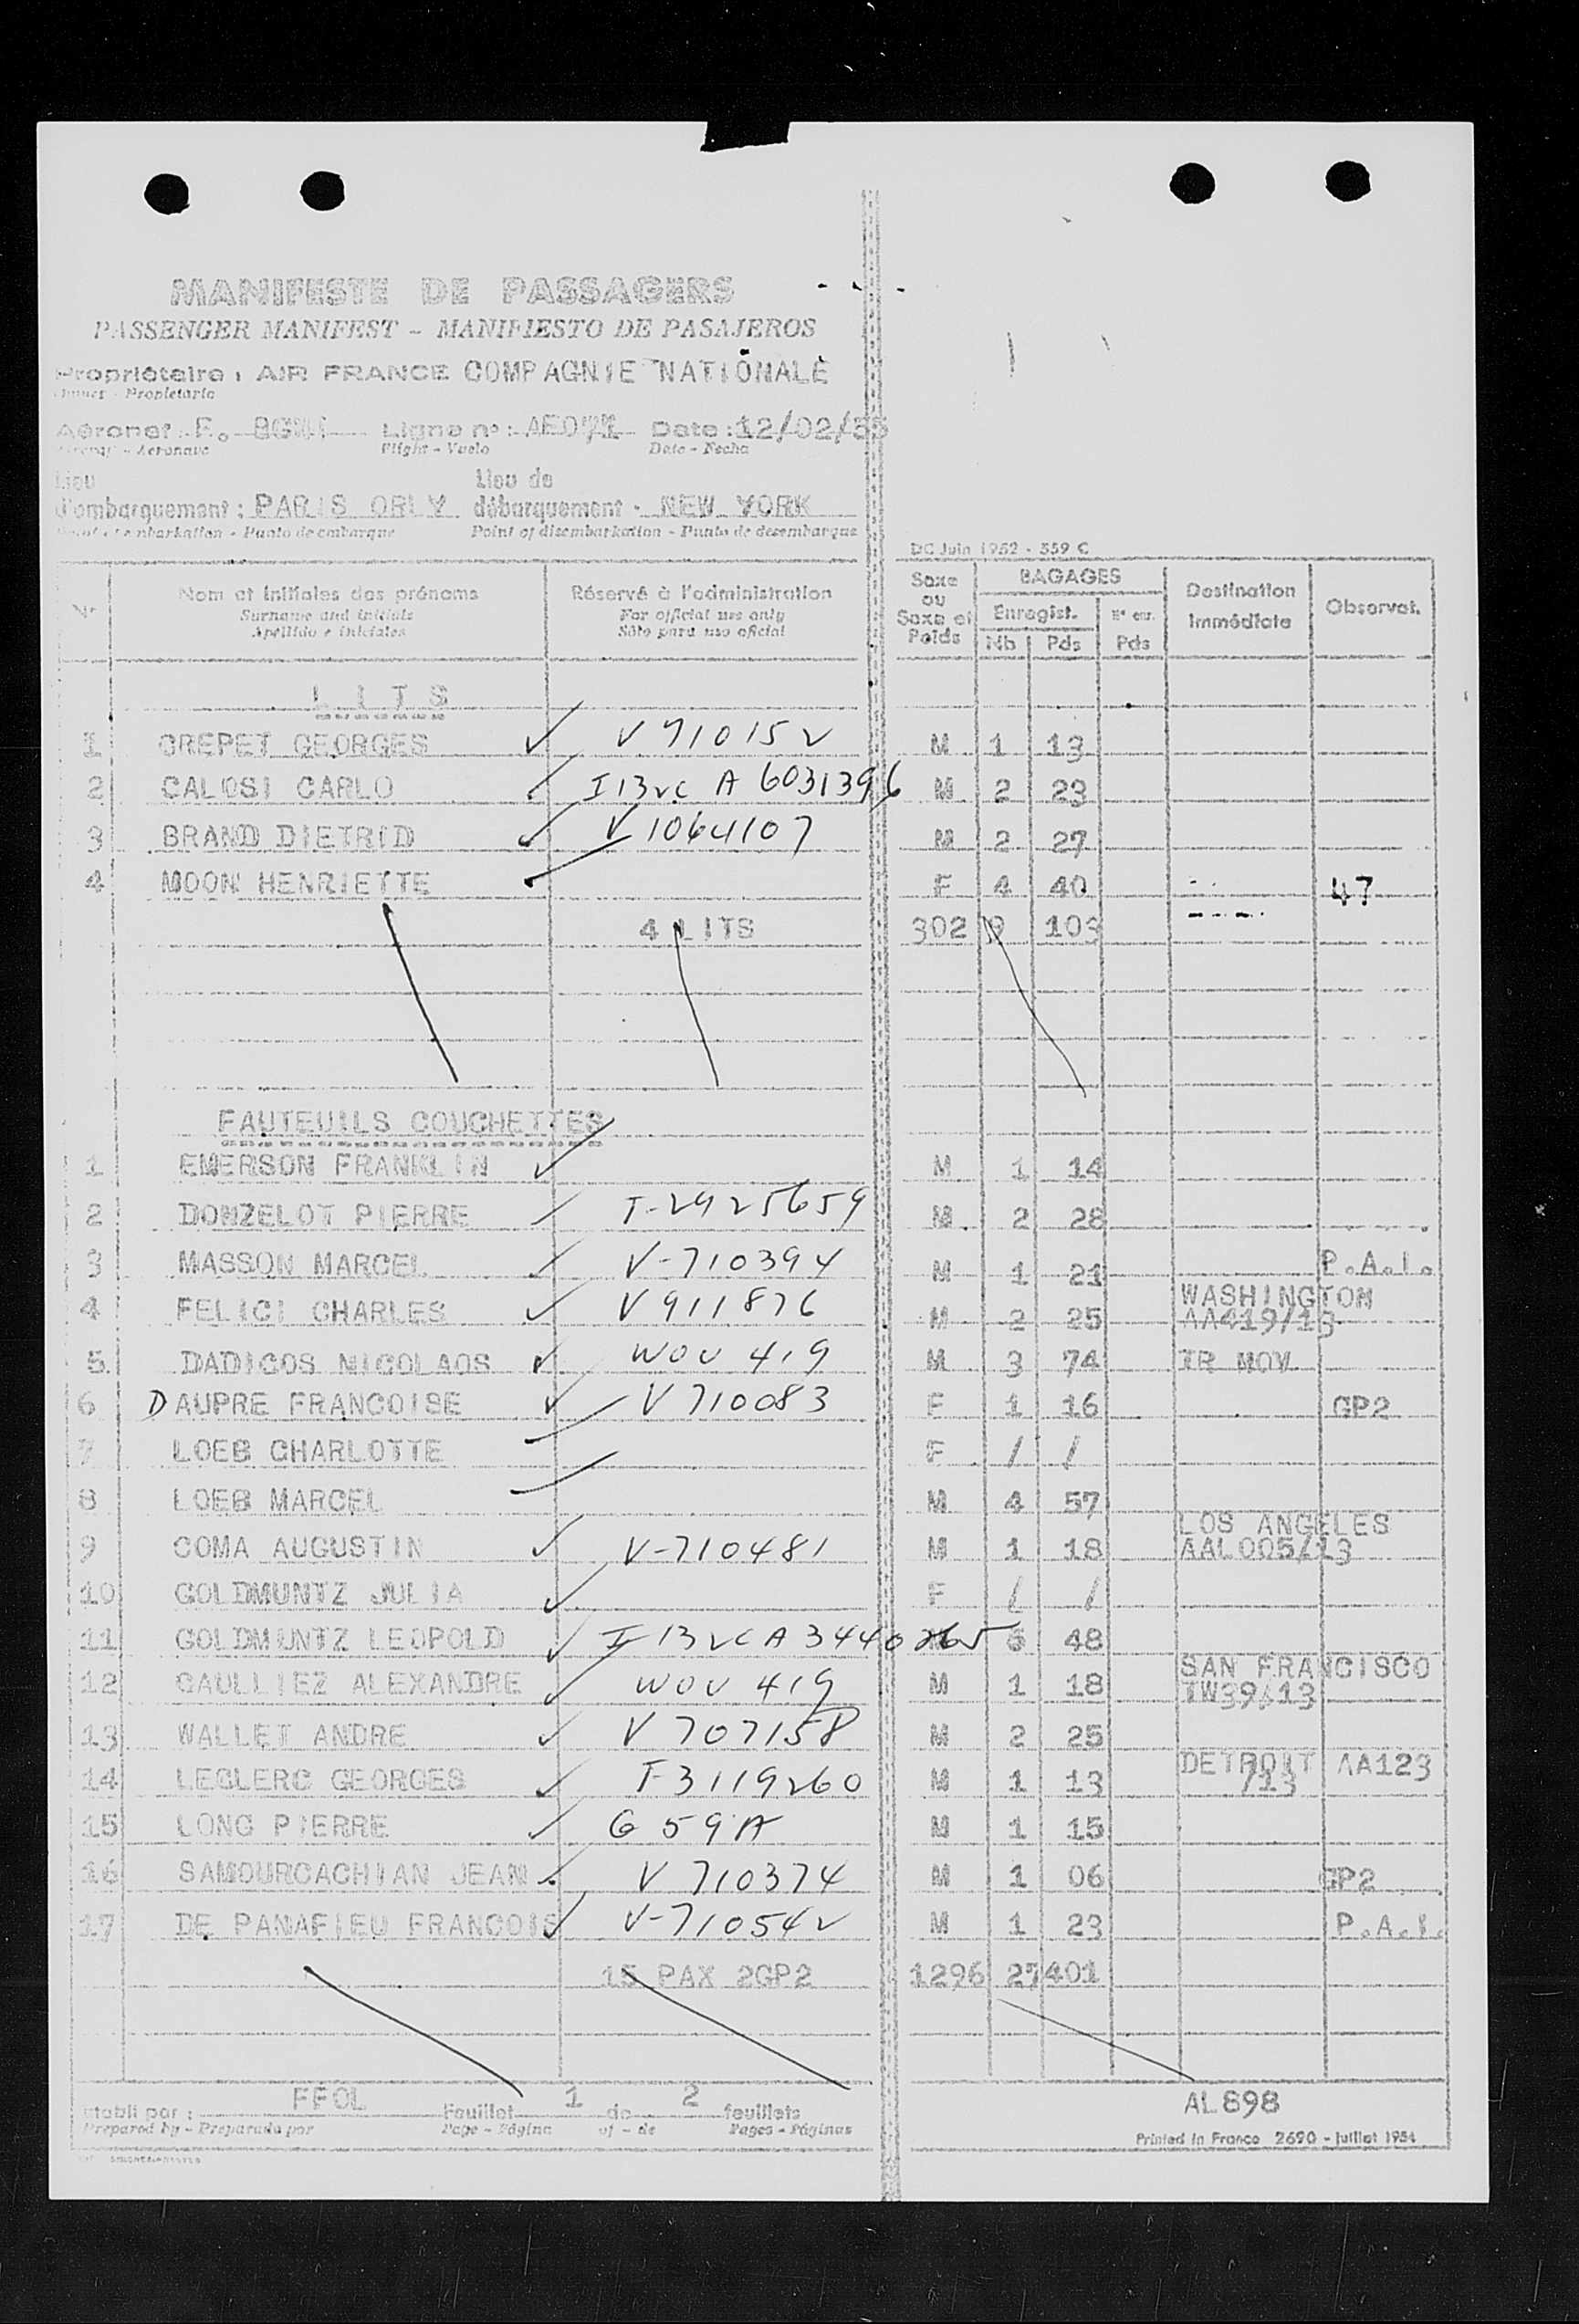 MANIFESTE DE PASSAGERS
PASSENGER MANIFEST - MANIFIESTO DE PASAJEROS
Propriétaire : AIR FRANCE COMPAGNIE NATIONALE
Owner - Propietario
Aéronef : F. Ligne n° : Date : 12/02/55
Aircraft - Aeronave Flight - Vuelo Date - Fecha
Lieu Lieu de
d'embarquement : PARIS ORLY débarquement - NEW YORK
Point of embarkation - Punto de embarque Point of disembarkation - Punto de desembarque
DC Juin 1952 - 559 C
N° Nom et initiales des prénoms Réservé à l'administration Sexe ou Sexe et Poids BAGAGES Destination immédiate Observat.
Surname and initials For official use only Enregist.
Apellido e iniciales Sólo para uso oficial Nb Pds Pds
LITS
1 GREPET GEORGES V 710152 M 1 13
2 CALOSI CARLO I 132C A 6031396 M 2 23
3 BRAND DIETRID V 1064107 M 2 27
4 MOON HENRIETTE F 4 40 47
4 LITS 302 9 103
FAUTEUILS COUCHETTES
1 EMERSON FRANKLIN M 1 14
2 DONZELOT PIERRE T-2925659 M 2 28
3 MASSON MARCEL V-710394 M 1 21 P.A.I.
4 FELICI CHARLES V 911876 M 2 25 WASHINGTON AA419/13
5 DADICOS NICOLAOS WOV 419 M 3 74 TR NOV
6 DAUPRE FRANCOISE V 710083 F 1 16 GP2
7 LOEB CHARLOTTE F / /
8 LOEB MARCEL M 4 57
9 COMA AUGUSTIN V-710481 M 1 18 LOS ANGELES AAL005/13
10 GOLDMUNTZ JULIA F / /
11 GOLDMUNTZ LEOPOLD I 132C A 3440265 48
12 GAULLIEZ ALEXANDRE WOV 419 M 1 18 SAN FRANCISCO TW39/13
13 WALLET ANDRE V 707158 M 2 25
14 LECLERC GEORGES T-3119260 M 1 13 DETROIT AA123 /13
15 LONG PIERRE G 59A M 1 15
16 SAMOURCACHIAN JEAN V 710374 M 1 06 GP2
17 DE PANAFIEU FRANCOIS V-710542 M 1 23 P.A.I.
15 PAX 2GP2 1296 27 401
Etabli par : FFOL Feuillet 1 de 2 feuillets AL898
Prepared by - Preparada por Page - Página of - de Pages - Páginas
Printed in France 2690 - Juillet 1954